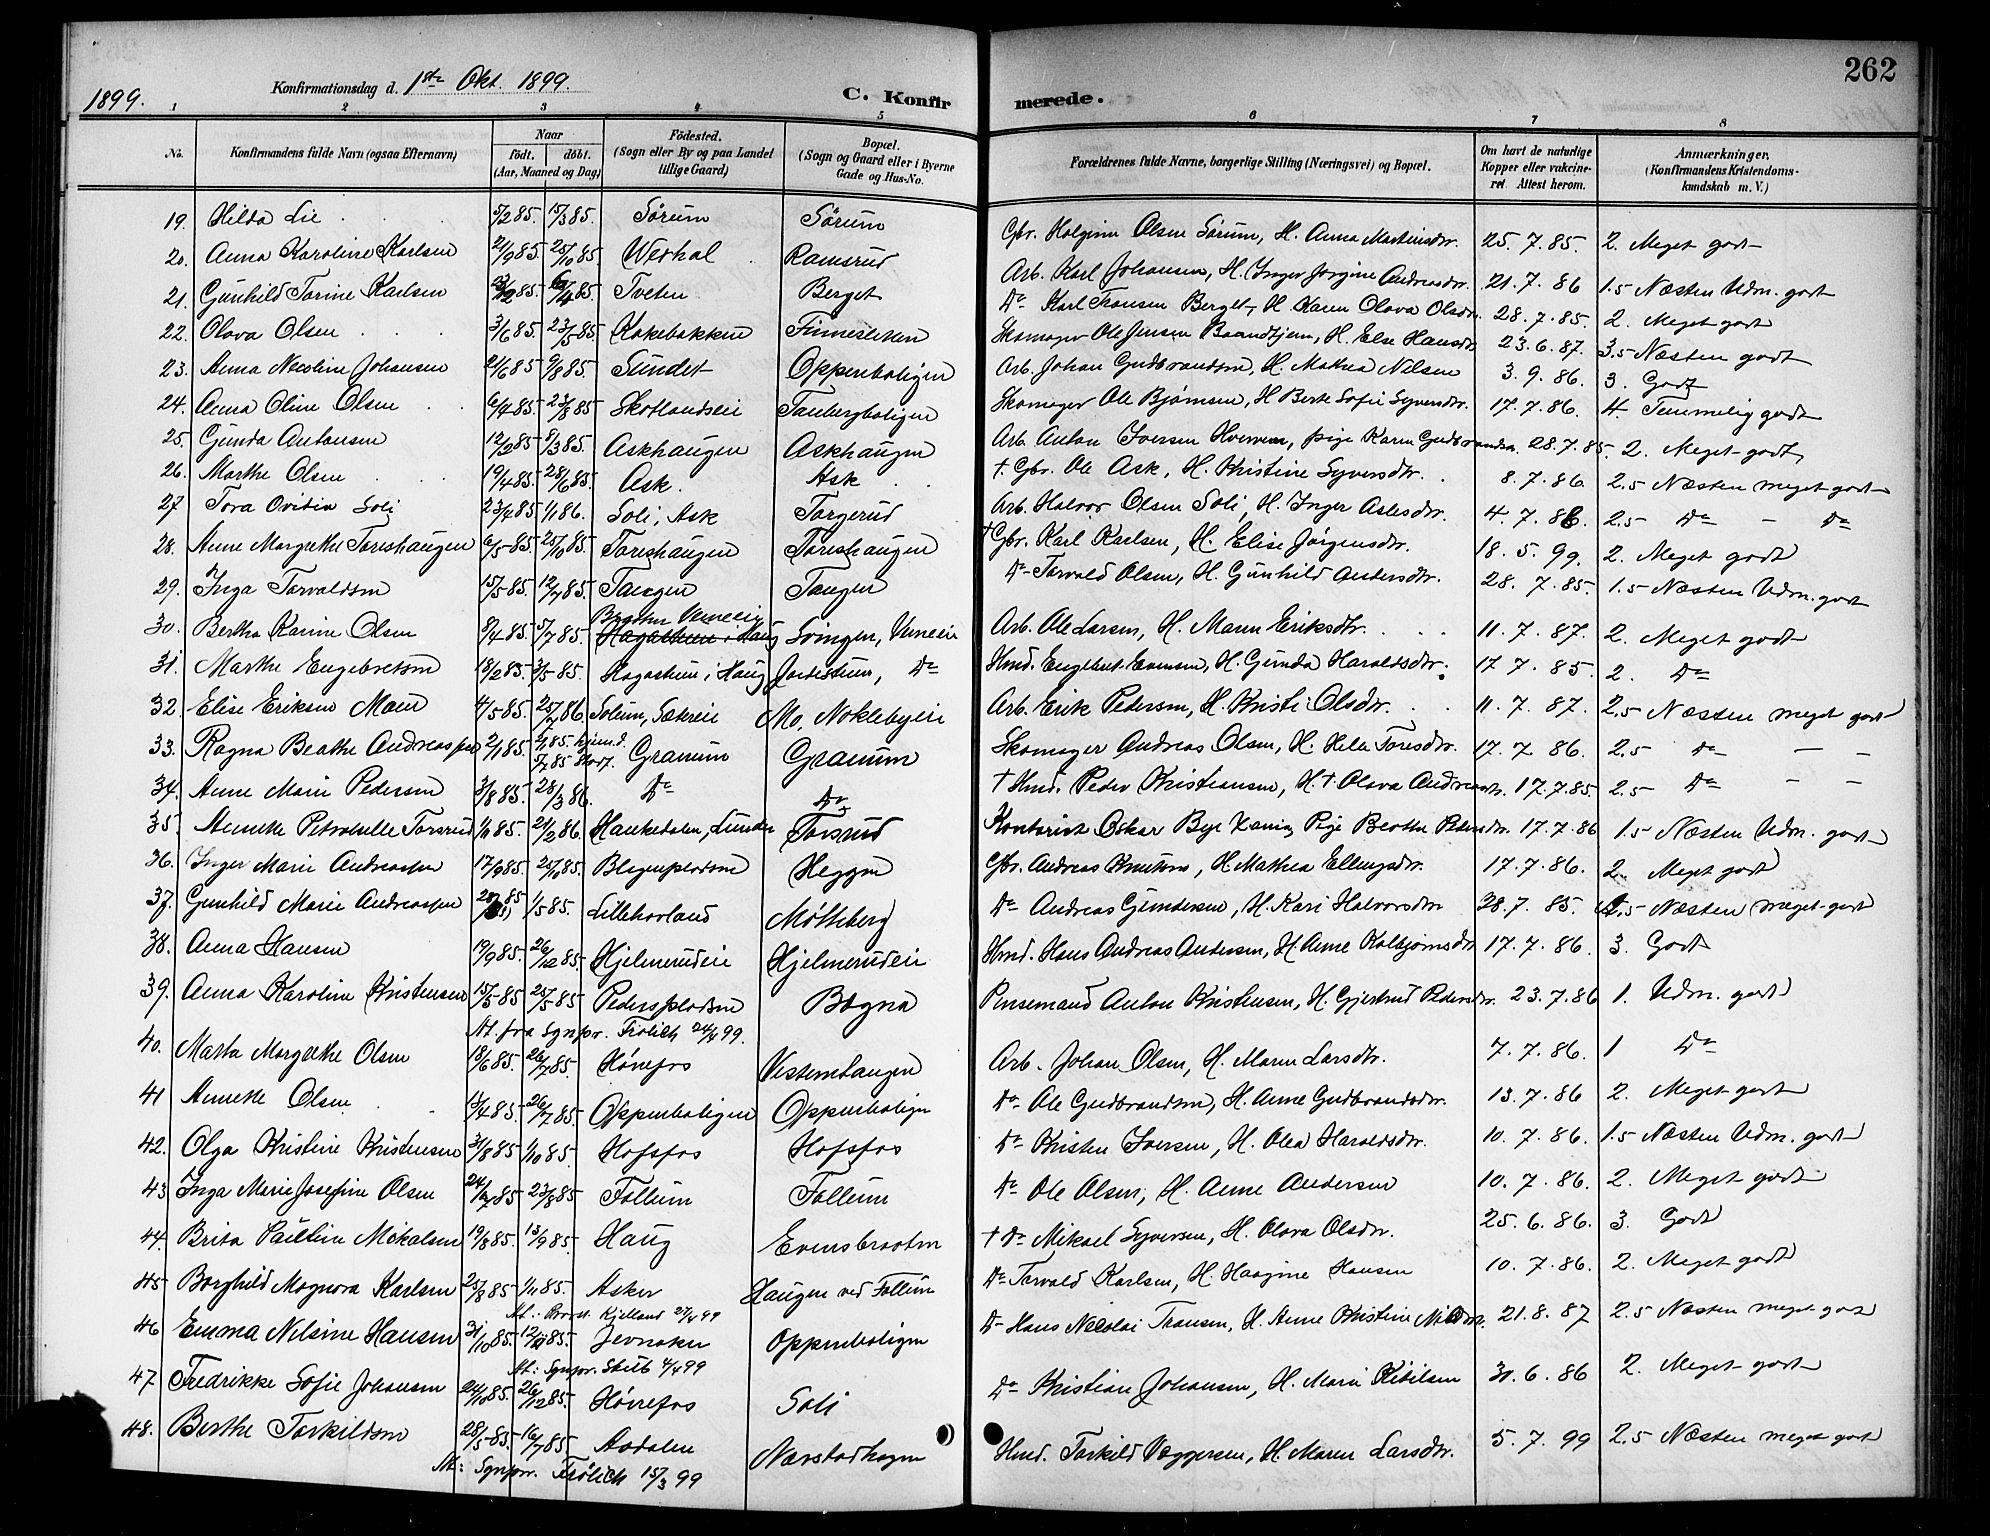 262
1899. Konfirmationsdag d. 1ste Okt. 1899. C. Konfirmerede.
1 2 3 4 5 6 7 8
No. Konfirmandens fulde Navn (ogsaa Efternavn) Naar Födt. döbt. (Aar, Maaned og Dag) Födested. (Sogn eller By og paa Landet tillige Gaard) Bopæl. (Sogn og Gaard eller i Byerne Gade og Hus-No. Forældrenes fulde Navne, borgerlige Stilling (Næringsvei) og Bopæl. Om havt de naturlige Kopper eller vakcineret. Attest herom. Anmærkninger. (Konfirmandens Kristendomskundskab m. V.)
19. Hilda Lie 5/2 85. 15/3 85. Sørum Sørum Gbr. Halginn Olsen Sørum, H. Anna Martinsdtr. 25. 7. 85. 2. Meget godt
20. Anna Karoline Karlsen 21/9 85. 25/10 85. Werhal Ramsrud Arb. Karl Johansen, H. Inger Jørgine Andreasdtr. 21. 7. 86 1.5 Næsten Udm. godt
21. Gunhild Torine Karlsen 85. /4 85. Tveten Berget Do Karl Fransen Berget, H. Karen Olava Olsdtr. 28. 7. 85. 2. Meget godt
22. Olava Olsen 3/6 85. 23/5 85. Kakebakken Finnesleken Skomager Ole Jensen Braandtjern, H. Else Hansdtr. 23. 6. 87. 3.5 Næsten godt
23. Anna Nicoline Johansen 21/6 85 9/8 85. Sundet Oppenboligen Arb. Johan Gudbrandsen, H. Mathea Nilsen 3. 9. 86. 3. Godt
24. Anna Oline Olsen 6/4 85. 23/8 85 Skotlandseie Tanbergboligen Skomager Ole Bjørnsen, H. Berte Sofie Syversdtr. 17. 7. 86. 4. Temmelig godt
25. Gunda Antonsen 12/2 85 8/3 85. Askhaugen Askhaugen Arb. Anton Iversen Hverven, pige Karen Gudbrandsdtr. 28. 7. 85. 2. Meget godt
26. Marthe Olsen 19/4 85. 28/6 85. Ask. Ask † Gbr. Ole Ask, H. Kristine Syversdtr. 8. 7. 86. 2.5 Næsten meget godt
27 Tora Ovidia Soli 23/4 85. 1/1 86. Soli, Ask Torgerud Arb. Halvor Olsen Soli, H. Inger Aslesdtr. 4. 7. 86. 2.5 Do - Do
28. Anne Margrethe Toreshaugen 6/5 85 25/10 85. Toreshaugen Toreshaugen † Gbr. Karl Karlsen, H. Elise Jørgensdtr. 18. 5. 99. 2. Meget godt
29. Inga Torvaldsen 15/5 85. 12/7 85. Tangen Tangen Do Torvald Olsen, H. Gunhild Andersdtr. 28. 7. 85. 1.5 Næsten Udm. godt
30. Bertha Karine Olsen 8/4 85. 5/7 85. Svingen, Veneeie Arb. Ole Larsen, H. Maren Eriksdtr. 11. 7. 87. 2. Meget godt
31. Marthe Engebretsen 18/2 85. 3/5 85. Hagastuen i Haug Jordistuen, Do Hmd. Engebret Evensen, H. Gunda Haroldsdtr. 17. 7. 85. 2. Do
32. Elise Eriksen Moen 4/5 85. 25/7 86. Solum, Sætereie Mo, Noklebyeie Arb. Erik Pedersen, H. Kristi Olsdtr. 11. 7. 87. 2.5 Næsten meget godt
33. Ragna Beathe Andreassen 2/1 85. 85. hjemd. 5/7 85 Granum Granum Skomager Andreas Olsen, H. Helene Toresdtr. 17. 7. 86. 2.5 Do - -
34. Anne Marie Pedersen 3/8 85. 28/3 86. Do Do † Hmd. Peder Kristiansen, H. † Olava Andreasdtr. 17. 7. 85. 2.5 Do - -
35. Annette Petronelle Torsrud 1/10 85. 21/2 86. Haukedalen, Lunder Torsrud Kontorist Oskar Bye Pige Beathe Pedersdtr. 17. 7. 86 1.5 Næsten Udm. godt
36. Inger Marie Andreassen 17/9 85. 25/10 85. Blegenpladsen Heggen Gbr. Andreas Knutsen, H. Mathea Ellingsdtr. 17. 7. 86. 2. Meget godt
37. Gunhild Marie Andreassen 85 1/5 85. Lillehovland Mølleberg Do Andreas Gundersen, H. Kari Halvorsdtr 28. 7. 85. 2.5 Næsten meget godt
38. Anna Hansen 19/9 85. 26/12 85. Hjelmerudeie Hjelmerudeie Hmd. Hans Andreas Andersen, H. Anne Kolbjørnsdtr. 17. 7. 86. 3. Godt
39. Anna Karoline Kristensen 15/5 85 25/5 85. Pederspladsen Bægna Pensemand Anton Kristensen, H. Gjertrud Pedersdtr. 23. 7. 86 1. Udm. godt
At. fra Sgnpr. Frölich 24/4 99.
40. Marta Margrethe Olsen 18/6 85. 26/7 85. Hønefos Vesterntangen Arb. Johan Olsen, H. Maren Larsdtr. 7. 7. 86. 1 Do
41 Annette Olsen 13/4 85. 26/7 85. Oppenboligen Oppenboligen Do Ole Gudbrandsen, H. Anne Gudbrandsdtr. 13. 7. 86 2. Meget godt
42. Olga Kristine Kristensen 3/8 85 1/10 85. Hofsfos Hofsfos Do Kristen Iversen, H. Olea Haroldsdtr. 10. 7. 86. 1.5 Næsten Udm. godt
43 Inga Marie Josefine Olsen 24/ 85 23/8 85 Follum Follum Do Ole Olsen, H. Anne Andersen 10. 7. 86. 2. Meget godt
44. Brita Pauline Mikalsen 19/8 85. 13/9 85. Haug Evensbraaten † Do Mikael Syversen, H. Olava Olsdtr. 25. 6. 86. 3. Godt
45 Borghild Magnora Karlsen 25/8 85 1/11 85. Asker Haugen ved Follum Do Torvald Karlsen, H. Haagine Hansen 10. 7. 86. 2. Meget godt
At.: Provst. Kjelland 27/4 99
46 Emma Nilsine Hansen 31/10 85. 12/ 85. Jevnaker Oppenboligen Do Hans Nicolai Fransen, H. Anne Kristine 21. 8. 87 2.5 Næsten meget godt
At: Sgnpr. Skub 4/4 99
47 Fredrikke Sofie Johansen 24/10 85. 26/12 85. Hønefos Soli Do Kristian Johansen, H. Marie Ketilsen 30. 6. 86 2. Meget godt
48. Berthe Torkildsen 28/5 85. 16/7 85. Aadalen Nærstadhagen Hmd. Torkild Væggersen, H. Maren Larsdtr. 5. 7. 99 2.5 Næsten meget godt
At: Sgnpr. Frölich 15/3 99